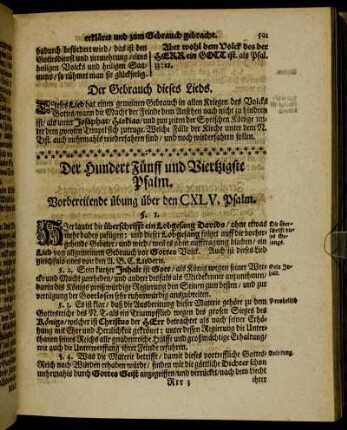 erkläret und zum Gebrauch gebracht. 501
dadurch befördert wird / das ist den
Gottesdienst und vermehrung eines
heiligen Volcks und heiligen Saa-
mens / so rühmet man sie glückselig.
Aber wohl dem Volck des der
HERR ein GOTT ist. als Psal.
33: 12.
Der Gebrauch dieses Lieds.
Dieses Lied hat einen gemeinen Gebrauch in allen Kriegen des Volcks
Gottes wann die Macht der Feinde dem Ansehen nach nicht zu hindern
ist / als unter Josaphat, Hiskias, und zur zeiten der Syrischen Könige un-
ter dem zweyten Tempel sich zutruge. Welche Fälle der Kirche unter dem N.
Test. auch mehrmahls wiederfahren sind / und noch wiederfahren sollen.
Der Hundert Fünff und Viertzigste
Psalm.
Vorbereitende übung über den CXLV. Psalm.
§. 1.
Hier lautet die überschrifft ein Lobgesang Davids / ohne etwas
mehr dabey zufügen: und dieser Lobgesang folget auff die vorher-
gehende Gebäter / und wird / wol ist ohne aufftragung blieben / ein
Lied von allgemeinem Gebrauch vor Gottes Volck. Auch ist dieses Lied
gleichfals eines von den A. B. C. Liedern.
§. 2. Sein kurtzer Inhalt ist Gott / als König wegen seiner Wer-
cke und Macht auch Gerichte / und ander desfals an Mitbekanten anzunehmen/
darin des Königs preißwürdige Regierung den Seinen zum besten / und zur
vertilgung der Gottlosen sehr rühmwürdig anzubreiten.
§. 3. Es ist klar / daß die Ausbreitung dieser Materie gehöre zu dem
Gottesdienst des N. T. als ein Triumpfflied wegen des grosen Sieges des
Königs / welcher ist Christus der HErr betrachtet als nach seiner Erhö-
hung mit Ehre und Herrlichkeit gekrönet: unter dessen Regierung die Unter-
thanen seines Reichs alle genadenreiche Hülffe und großmächtige Erhaltung/
wie auch die Unterwerffung ihrer Feinde erfuhren.
§. 4. Was die Materie betrifft / damit dieses vortreffliche Gottes-
Reich nach Würden erhaben würde / finden wir die göttliche Dichter schon
mehrmahls durch Gottes Geist angegriffen und verrücket nach dem Liecht
Rrr 3 ihrer
Prophetisch
Anleitung.